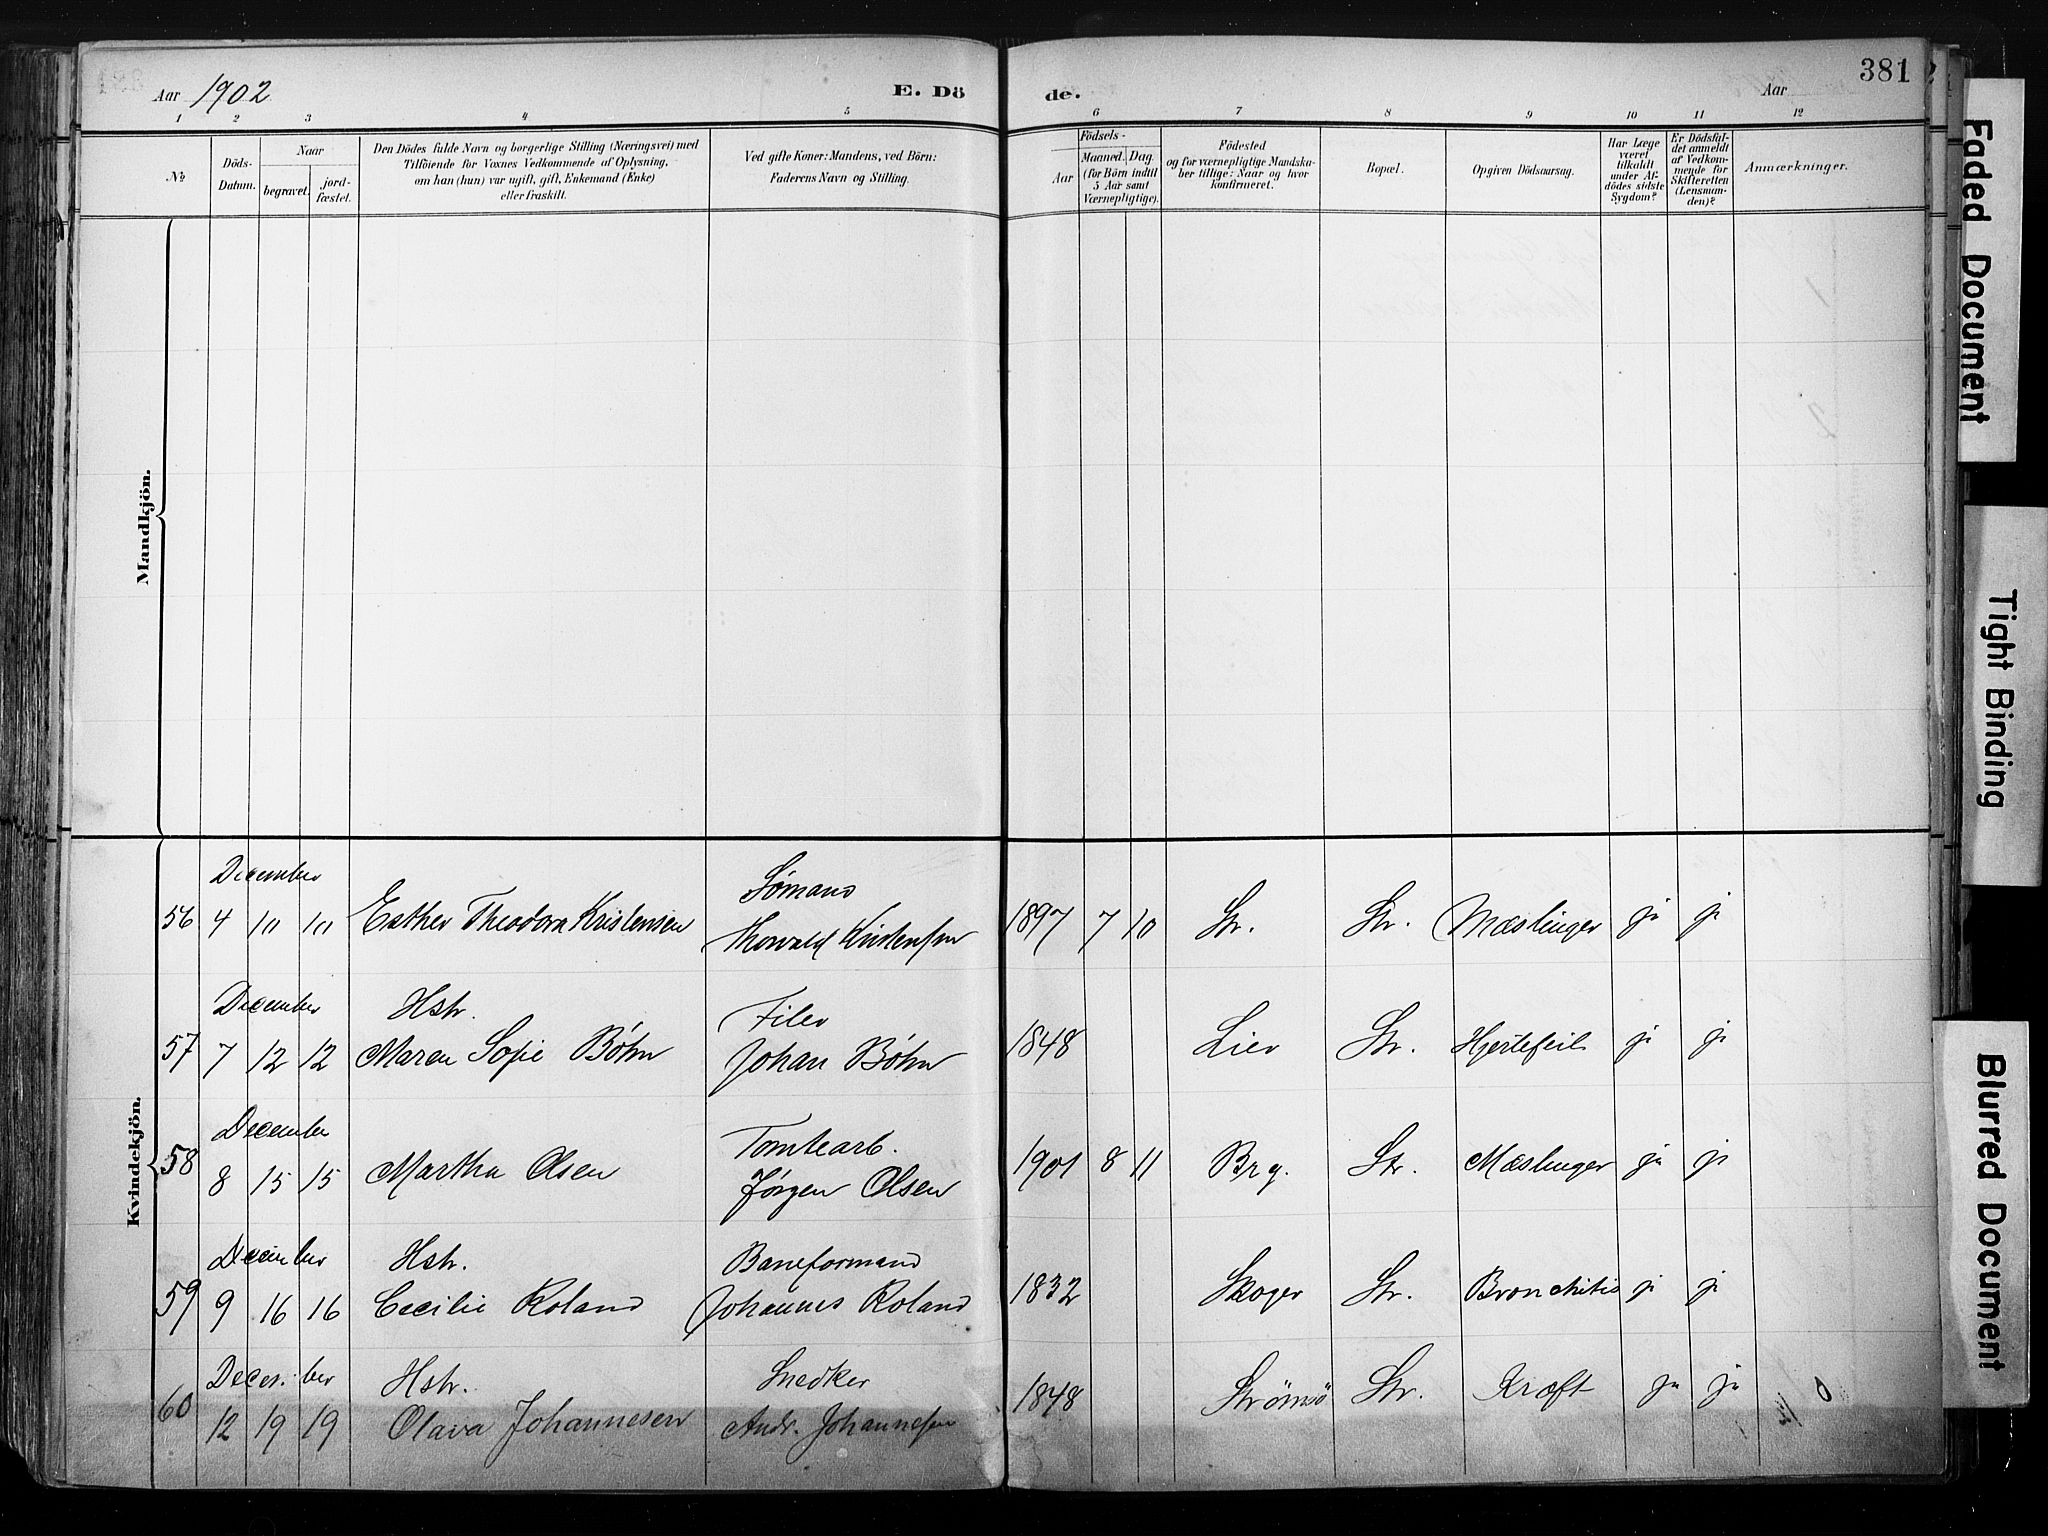 Aar 1902
E. Dö
de.
Aar
381
1 2 3 4 5 6 7 8 9 10 11 12
№
Döds-
Datum.
Naar
begravet.
jord-
fæstet.
Den Dödes fulde Navn og borgerlige Stilling (Næringsvei) med
Tilföiende for Voxnes Vedkommende af Oplysning,
om han (hun) var ugift, gift, Enkemand (Enke)
eller fraskilt.
Ved gifte Koner: Mandens, ved Börn:
Faderens Navn og Stilling.
Födsels-
Aar
Maaned. Dag.
(for Börn indtil
5 Aar samt
Værnepligtige).
Födested
og for værnepligtige Mandska-
ber tillige: Naar og hvor
konfirmeret.
Bopæl.
Opgiven Dödsaarsag.
Har Læge
været
tilkaldt
under Af-
dödes sidste
Sygdom?
Er Dödsfal-
det anmeldt
af Vedkom-
mende for
Skifteretten
(Lensman-
den)?
Anmærkninger.
Mandkjön.
Kvindekjön.
December Sømand
56 4 10 10 Esther Theodora Kristensen Thorvald Kristensen 1897 7 10 Str. Str. Mæslinger ja ja
December Hstr. Filer
57 7 12 12 Maren Sofie Bøhn Johan Bøhn 1848 Lier Str. Hjertefeil ja ja
December Tomtearb.
58 8 15 15 Martha Olsen Jørgen Olsen 1901 8 11 Brg. Str. Mæslinger ja ja
December Hstr. Baneformand
59 9 16 16 Cecilie Roland Johannes Roland 1832 Skoger Str. Bronchitis ja ja
December Hstr. Snedker
60 12 19 19 Olava Johannesen Andr. Johannesen 1848 Strömsö Str. Kræft ja ja
Faded Document
Tight Binding
Blurred Document